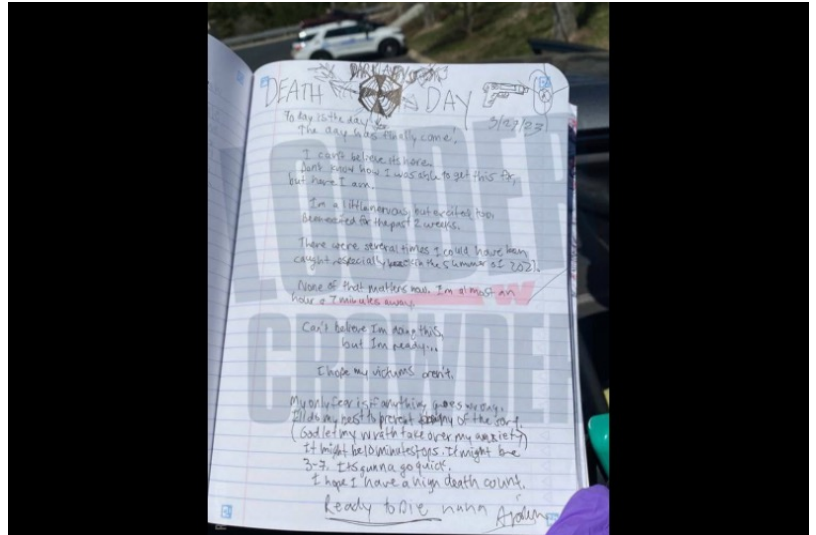 DARK ABYSS
DEATH DAY
3/27/23
Today is the day
The day has finally come!
I can't believe its here.
Don't know how I was able to get this far,
but here I am.
I'm a little nervous, but excited too.
Been excited for the past 2 weeks.
There were several times I could have been
caught, especially in the summer of 2021.
None of that matters now. I'm almost an
hour & 7 minutes away.
Can't believe I'm doing this,
but I'm ready...
I hope my victims aren't.
My only fear is if anything goes wrong.
I'll do my best to prevent any of the sort.
(God let my wrath take over my anxiety)
It might be 10 minutes tops. It might be
3-7. Its gunna go quick.
I hope I have a high death count.
Ready to Die haha
Aiden
LOUDER
W
CROWDER